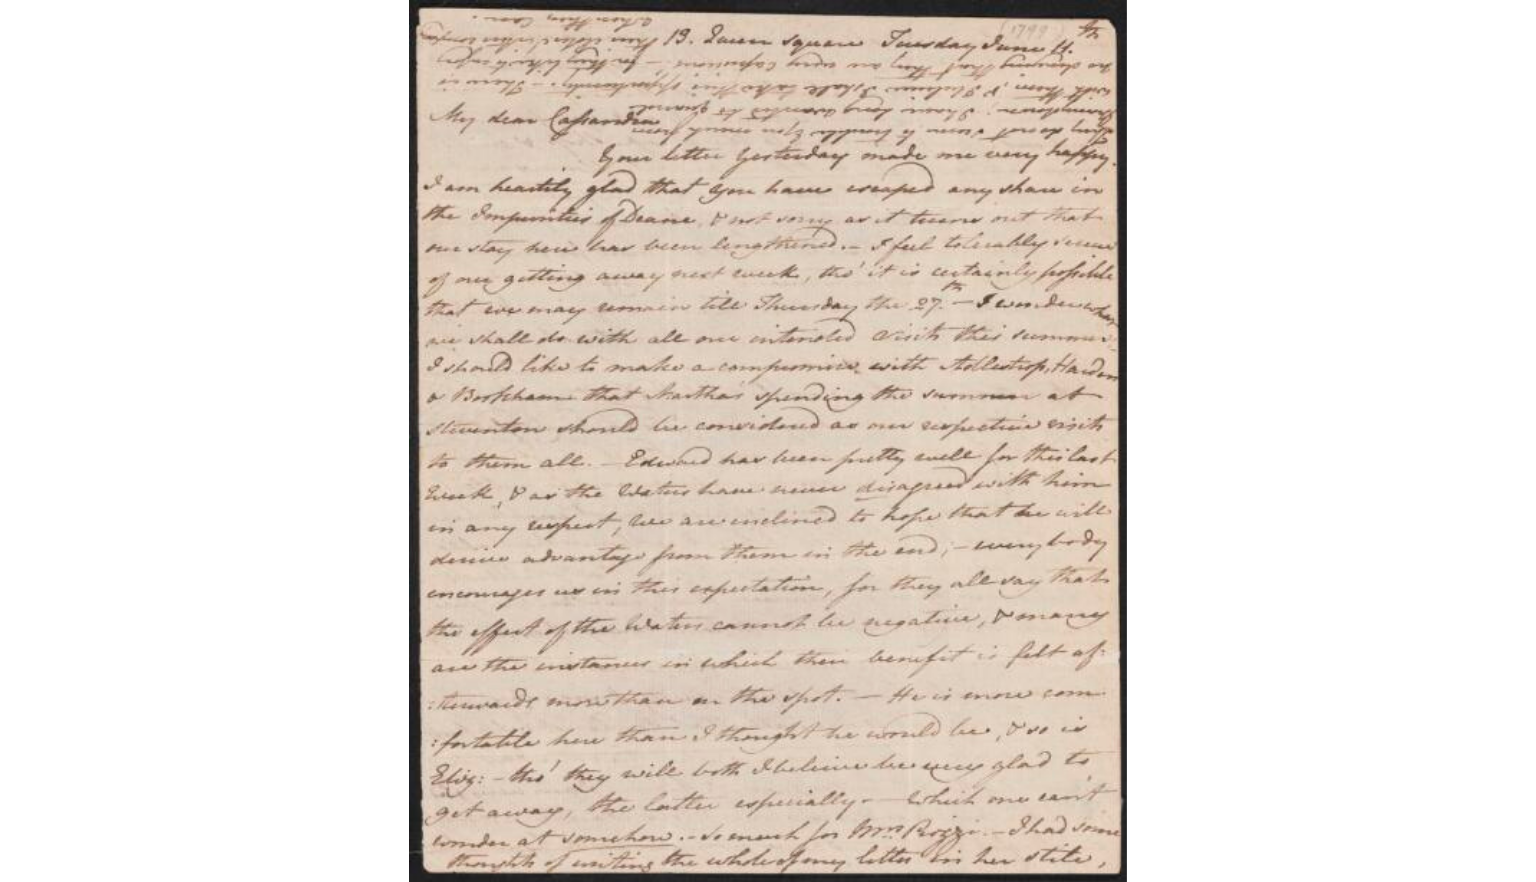 13. Queen Square Tuesday June 11.th
My dear Cassandra
Your letter yesterday made me very happy.
I am heartily glad that you have escaped any share in
the Impurities of Deane, & not sorry as it turns out that
our stay here has been lengthened. - I feel tolerably secure
of our getting away next week, tho' it is certainly possible
that we may remain till Thursday the 27.th - I wonder what
we shall do with all our intended visits this summer. -
I should like to make a compromise with Adlestrop, Harden
& Bookham that Martha's spending the summer at
Steventon should be considered as our respective visits
to them all. - Edward has been pretty well for this last
Week, & as the Waters have never disagreed with him
in any respect, We are inclined to hope that he will
derive advantage from them in the end; - everybody
encourages us in this expectation, for they all say that
the effect of the Waters cannot be negative, & many
are the instances in which their benefit is felt af:
:terwards more than on the spot. - He is more com
:fortable here than I thought he would be, & so is
Eliz: - tho' they will both I believe be very glad to
get away, the latter especially - Which one can't
wonder at somehow. - So much for Mrs. Piozzi. - I had some
thoughts of writing the whole of my letter in her stile,
They do not seem to trouble you much from
Manydown; I have long wanted to quarrel
with them, & I believe I shall take this opportunity. - There is
no denying that they are very capricious! - for they like to enjoy
their elder Sister's company
when they can.
(1799)